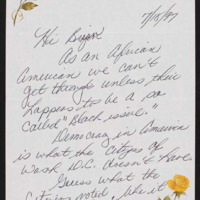 7/15/97
Hi Bijan
As an African
American we can't
get through unless their
happens to be a so
called "Black issue."
Democracy in America
is what the Citizens of
Wash D.C. doesn't have.
I guess what the
Citizens voted like it